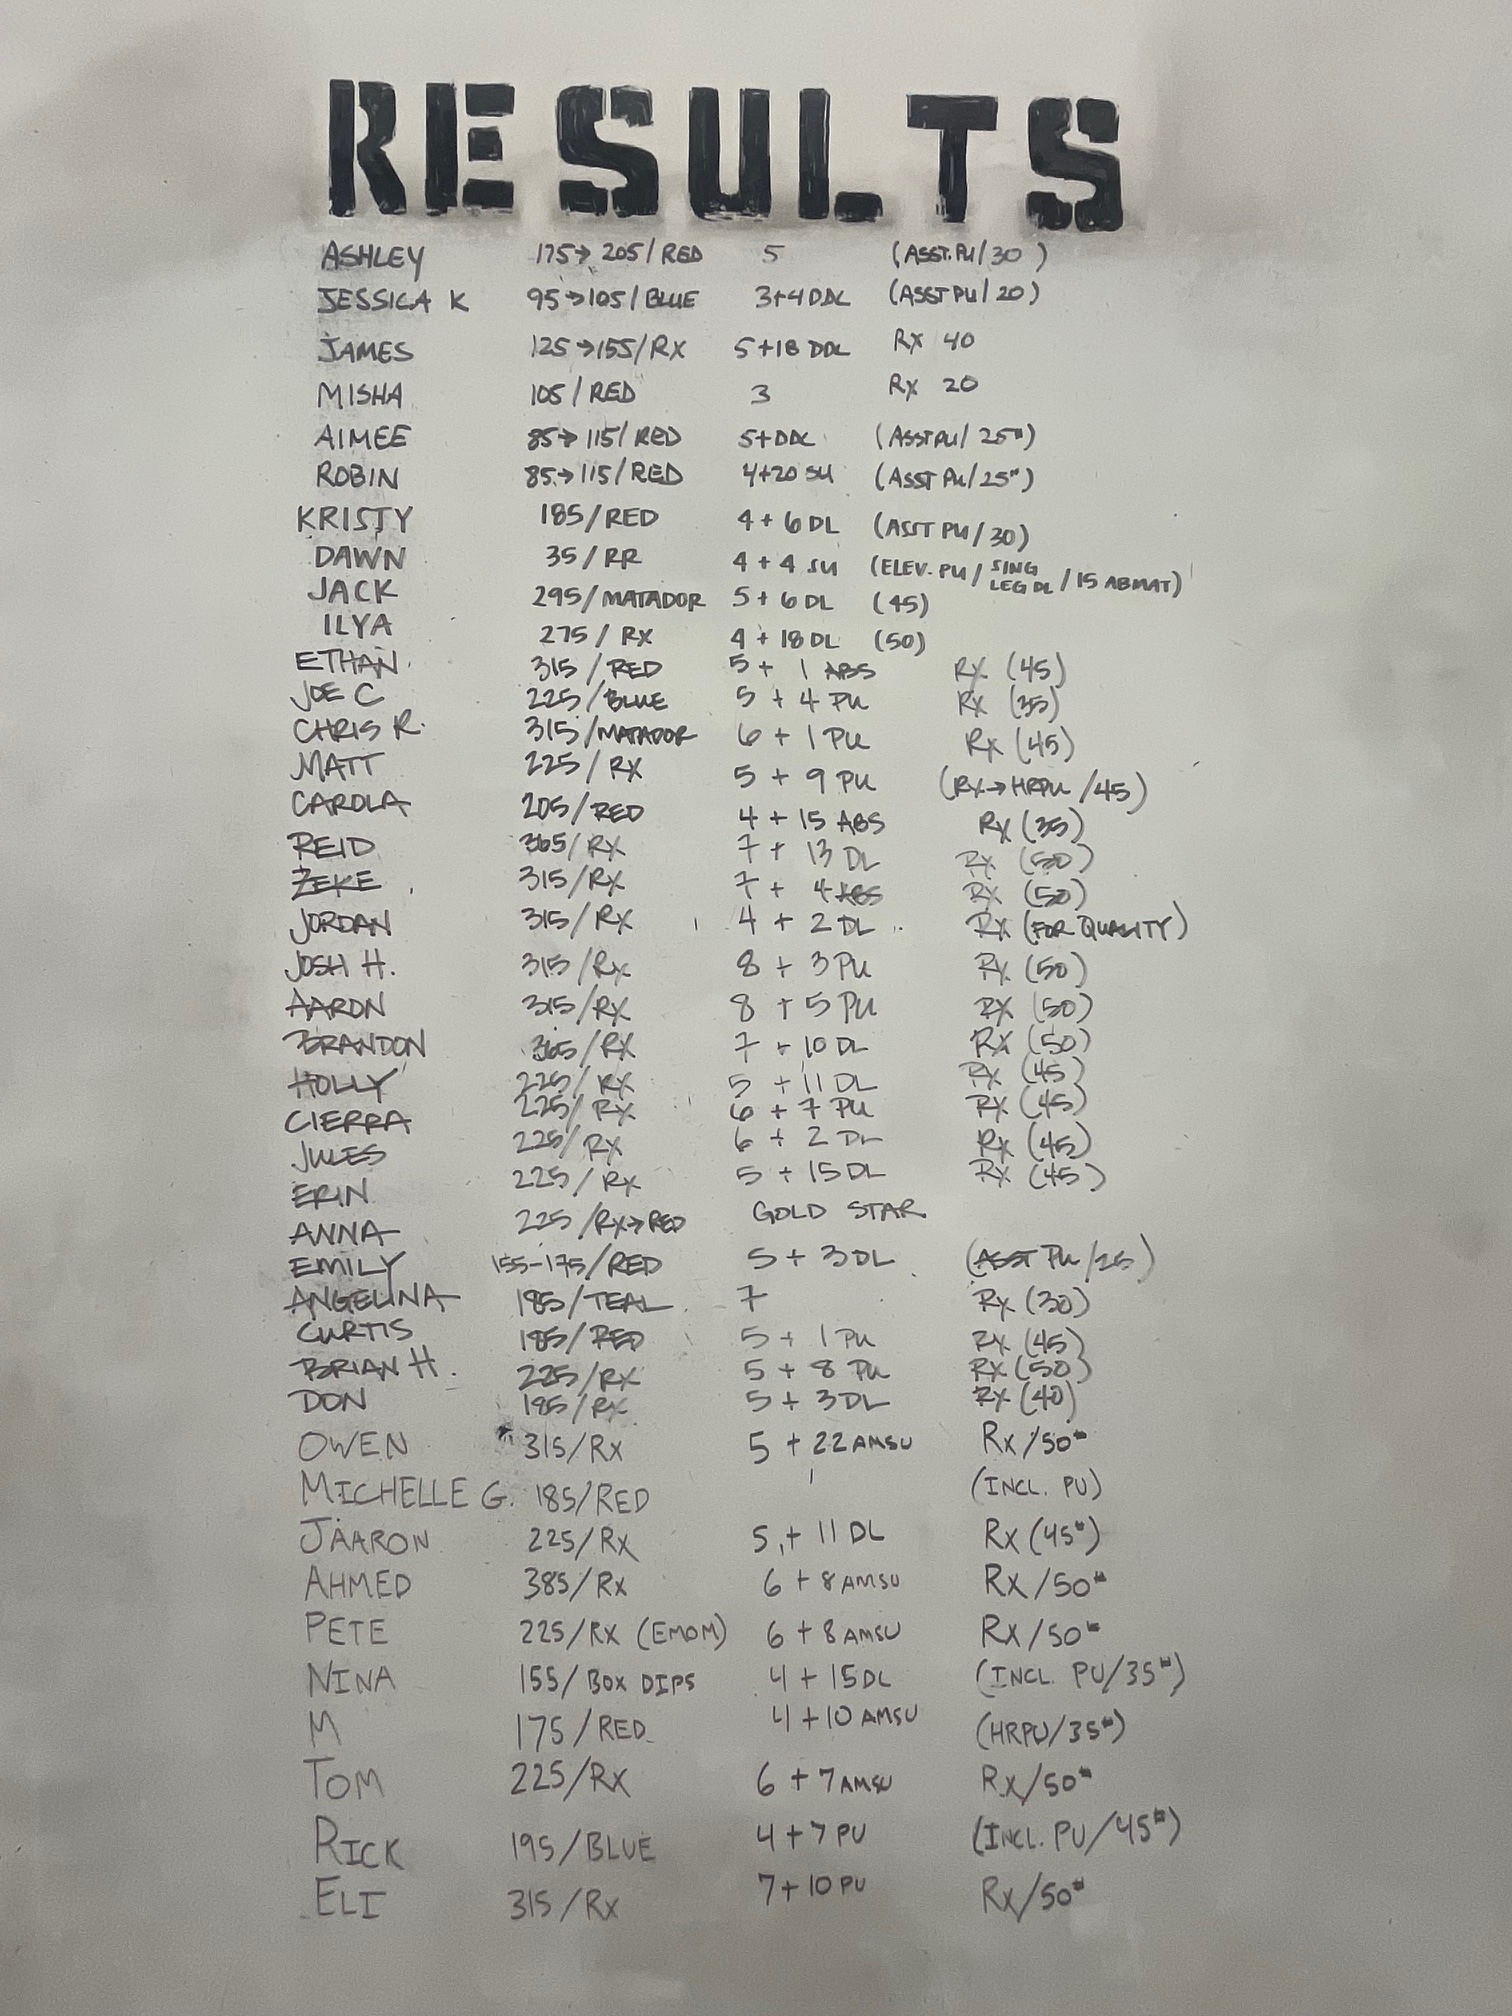 RESULTS
ASHLEY 175→205/RED 5 (ASST.PU/30)
JESSICA K 95→105/BLUE 3+4DDL (ASST PU/20)
JAMES 125→155/RX 5+18 DDL RX 40
MISHA 105/RED 3 RX 20
AIMEE 85→115/RED 5+DDL (ASST PU/25#)
ROBIN 85→115/RED 4+20 SU (ASST PU/25#)
KRISTY 185/RED 4+6DL (ASST PU/30)
DAWN 35/RR 4+4 SU (ELEV. PU/SING LEG DL/15 ABMAT)
JACK 295/MATADOR 5+6DL (45)
ILYA 275/RX 4+18DL (50)
ETHAN 315/RED 5+1 ABS RX (45)
JOE C 225/BLUE 5+4 PU RX (35)
CHRIS R. 315/MATADOR 6+1 PU RX (45)
MATT 225/RX 5+9 PU (RX→HRPU/45)
CAROLA 205/RED 4+15 ABS RX (35)
REID 365/RX 7+13 DL RX (50)
ZEKE 315/RX 7+4 ABS RX (50)
JORDAN 315/RX 4+2 DL RX (FOR QUALITY)
JOSH H. 315/RX 8+3 PU RX (50)
AARON 315/RX 8+5 PU RX (50)
BRANDON 365/RX 7+10 DL RX (50)
HOLLY 225/RX 5+11 DL RX (45)
CIERRA 225/RX 6+7 PU RX (45)
JULES 225/RX 6+2 DL RX (45)
ERIN 225/RX 5+15 DL RX (45)
ANNA 225/RX→RED GOLD STAR
EMILY 155-175/RED 5+3DL (ASST PU/25)
ANGELINA 185/TEAL 7 RX (30)
CURTIS 185/RED 5+1 PU RX (45)
BRIAN H. 225/RX 5+8 PU RX (50)
DON 185/RX 5+3DL RX (40)
OWEN 315/RX 5+22 AMSU RX/50#
MICHELLE G. 185/RED (INCL. PU)
JAARON 225/RX 5+11 DL RX (45#)
AHMED 385/RX 6+8 AMSU RX/50#
PETE 225/RX (EMOM) 6+8 AMSU RX/50#
NINA 155/BOX DIPS 4+15DL (INCL. PU/35#)
M 175/RED 4+10 AMSU (HRPU/35#)
TOM 225/RX 6+7 AMSU RX/50#
RICK 195/BLUE 4+7 PU (INCL. PU/45#)
ELI 315/RX 7+10 PU RX/50#